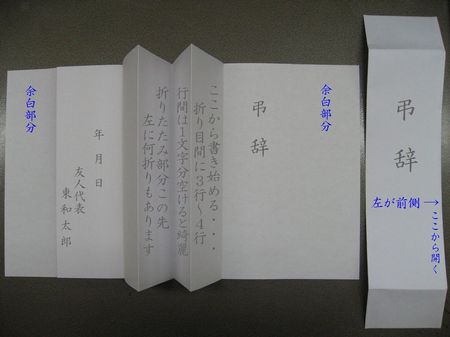 余白部分
弔辞
ここから書き始める・・・
折り目間に3行～4行
行間は1文字分空けると綺麗
折りたたみ部分この先
左に何折りもあります
年月日
友人代表
東和太郎
余白部分
弔辞
左が前側→
ここから開く